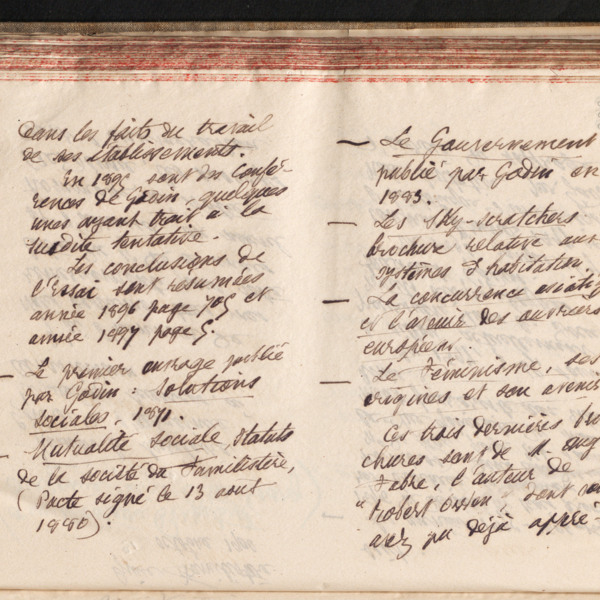 dans les faits du travail
de ses établissements.
En 1896 sont des Confé-
rences de Godin, quelques
unes ayant trait à la
susdite tentative.
Les conclusions de
l'Essai sont résumées
année 1896 page 705 et
année 1897 page 5.
Le premier ouvrage publié
par Godin : Solutions
sociales, 1871.
Mutualité sociale statuts
de la société du Familistère,
(Pacte signé le 13 aout
1880).
— Le Gouvernement
publié par Godin en
1883.
— Les Sky-scratchers
brochure relative aux
systèmes d'habitation
— La concurrence asiatiq
et l'avenir des ouvriers
européens.
— Le Féminisme, ses
origines et son avenir
Ces trois dernières bro
chures sont de M. Aug
Fabre, l'auteur de
"Robert Owen", dont vous
avez pu déjà appré-